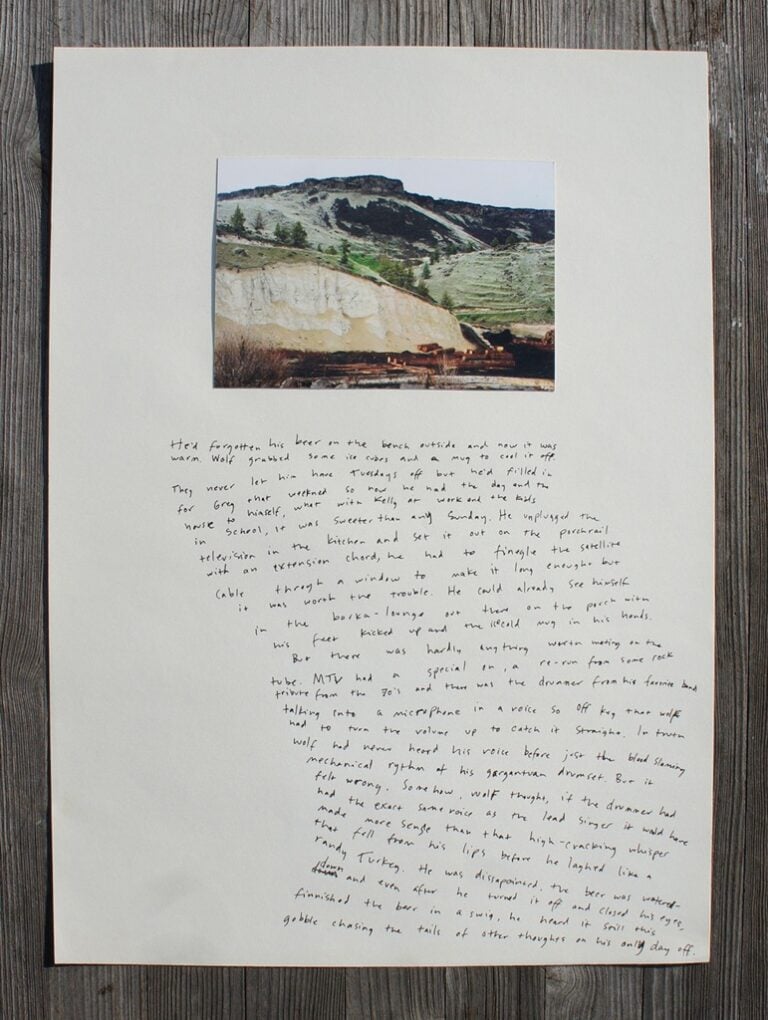 He'd forgotten his beer on the bench outside and now it was
warm. Wolf grabbed some ice cubes and a mug to cool it off.
They never let him have Tuesdays off but he'd filled in
for Greg that weekned so now he had the day and the
house to himself, what with Kelly at work and the kids
in School, it was sweeter than any Sunday. He unplugged the
television in the kitchen and set it out on the porchrail
with an extension chord, he had to finegle the satellite
cable through a window to make it long enought but
it was worth the trouble. He could already see himself
in the barka-lounge out there on the porch with
his feet kicked up and the icecold mug in his hands.
But there was hardly anything worth on the
tube. MTV had a special on, a re-run from some rock
tribute from the 80's and there was the drummer from his favorite band
talking into a microphone in a voice so off key that wolf
had to turn the volume up to catch it straight. In truth
wolf had never heard his voice before just the blood slaming
mechanical rythm of his gargantuan drumset. But it
felt wrong. Somehow, wolf thought, if the drummer had
had the exact same voice as the lead singer it wold have
made more sense than that high-cracking whisper
that fell from his lips before he laghed like a
randy Turkey. He was dissapointed, the beer was watered-
down and even after he turned it off and closed his eyes,
finnished the beer in a swig, he heard it still this
gobble chasing the tails of other thoughts on his only day off.